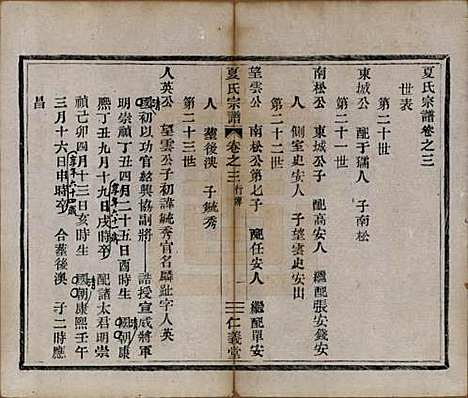 夏氏宗譜卷之三
世表
第二十世
東城公 配于孺人 子南松
第二十一世
南松公 東城公子 配高安人 繼配張安錢安
人 側室史安人 子望雲史安出
第二十二世
望雲公 南松公第七子 配任安人 繼配單安
夏氏宗譜 卷之三 行傳 一 三 仁義堂
人 葬後澳 子毓秀
第二十三世
人英公 望雲公子初諱毓秀官名麟趾字人英
國初以功官紹興協副將 誥授宣威將軍
明崇禎丁丑四月二十五日酉時生 國朝康
熙丁丑九月十九日戌時卒 配諸太君明崇
禎己卯四月十三日亥時生 國朝康熙壬午
三月十六日申時卒 合葬後澳 子二時應
昌